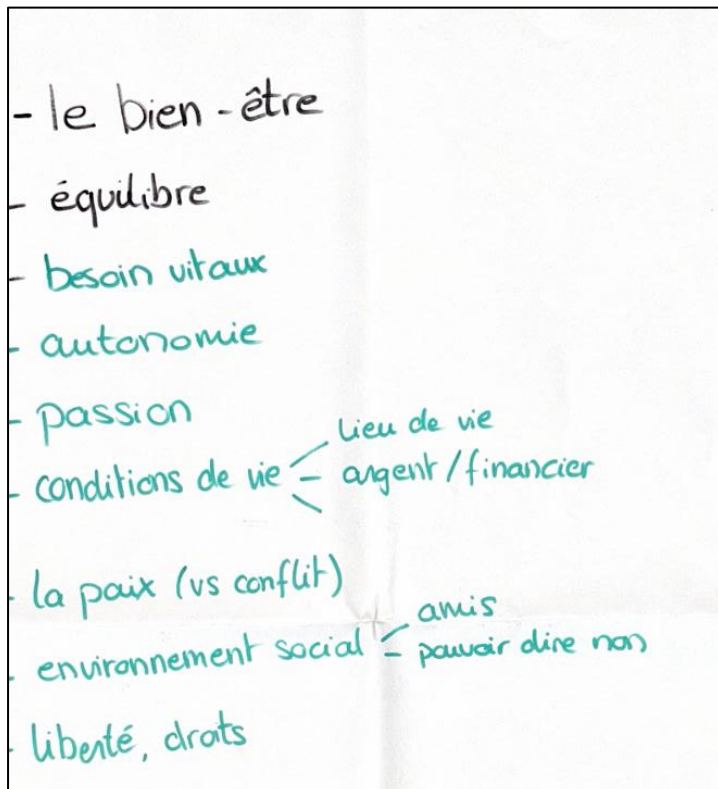 - le bien-être
- équilibre
- besoin vitaux
- autonomie
- passion
lieu de vie
- conditions de vie - argent/financier
- la paix (vs conflit)
amis
- environnement social - pouvoir dire non
- liberté, droits